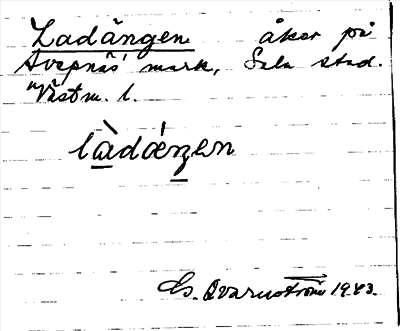 Ladängen åker på
Svepnäs mark, Sala stad.
Västm. l.
làdáŋen
Es. Qvarnström 1943.